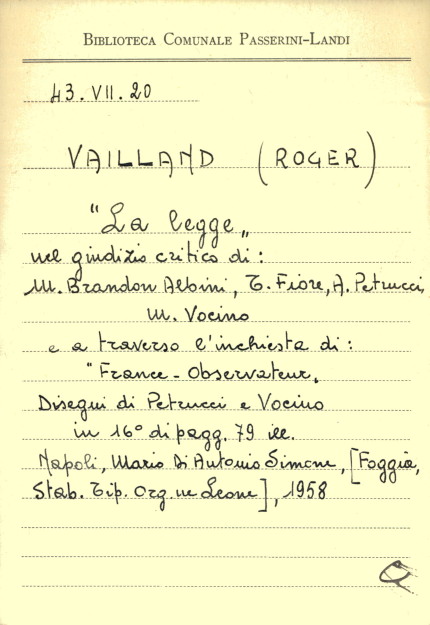 BIBLIOTECA COMUNALE PASSERINI-LANDI
43.VII.20
VAILLAND (ROGER)
"La legge„
nel giudizio critico di:
M. Brandon Albini, T. Fiore, A. Petrucci,
M. Vocino
e a traverso l'inchiesta di:
"France-Observateur„
Disegni di Petrucci e Vocino
in 16° di pagg. 79 ill.
Napoli, Mario Di Antonio Simone, [Foggia,
Stab. Tip. Leone], 1958